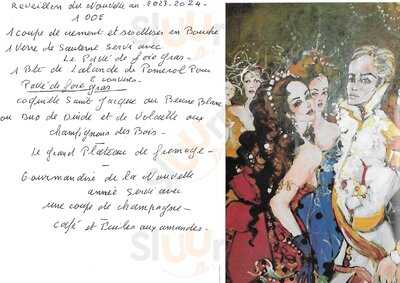 Reveillon du Nouvelle an 2023.2024.
100€
1 coupe de cremant et ses mises en Bouche
1 Verre de Sauterne Servi avec
Le Pavé de foie gras.
1 Bte de Lalande de Pomerol Pour
2 convives.
Pavé de foie gras
coquille Saint Jacques au Beurre Blanc
ou Duo de Dinde et de Volaille aux
champignons des Bois.
Le grand Plateau de fromage.
Gourmandise de la Nouvelle
année Servi avec
une coupe de champagne.
café et Tuiles aux amandes.